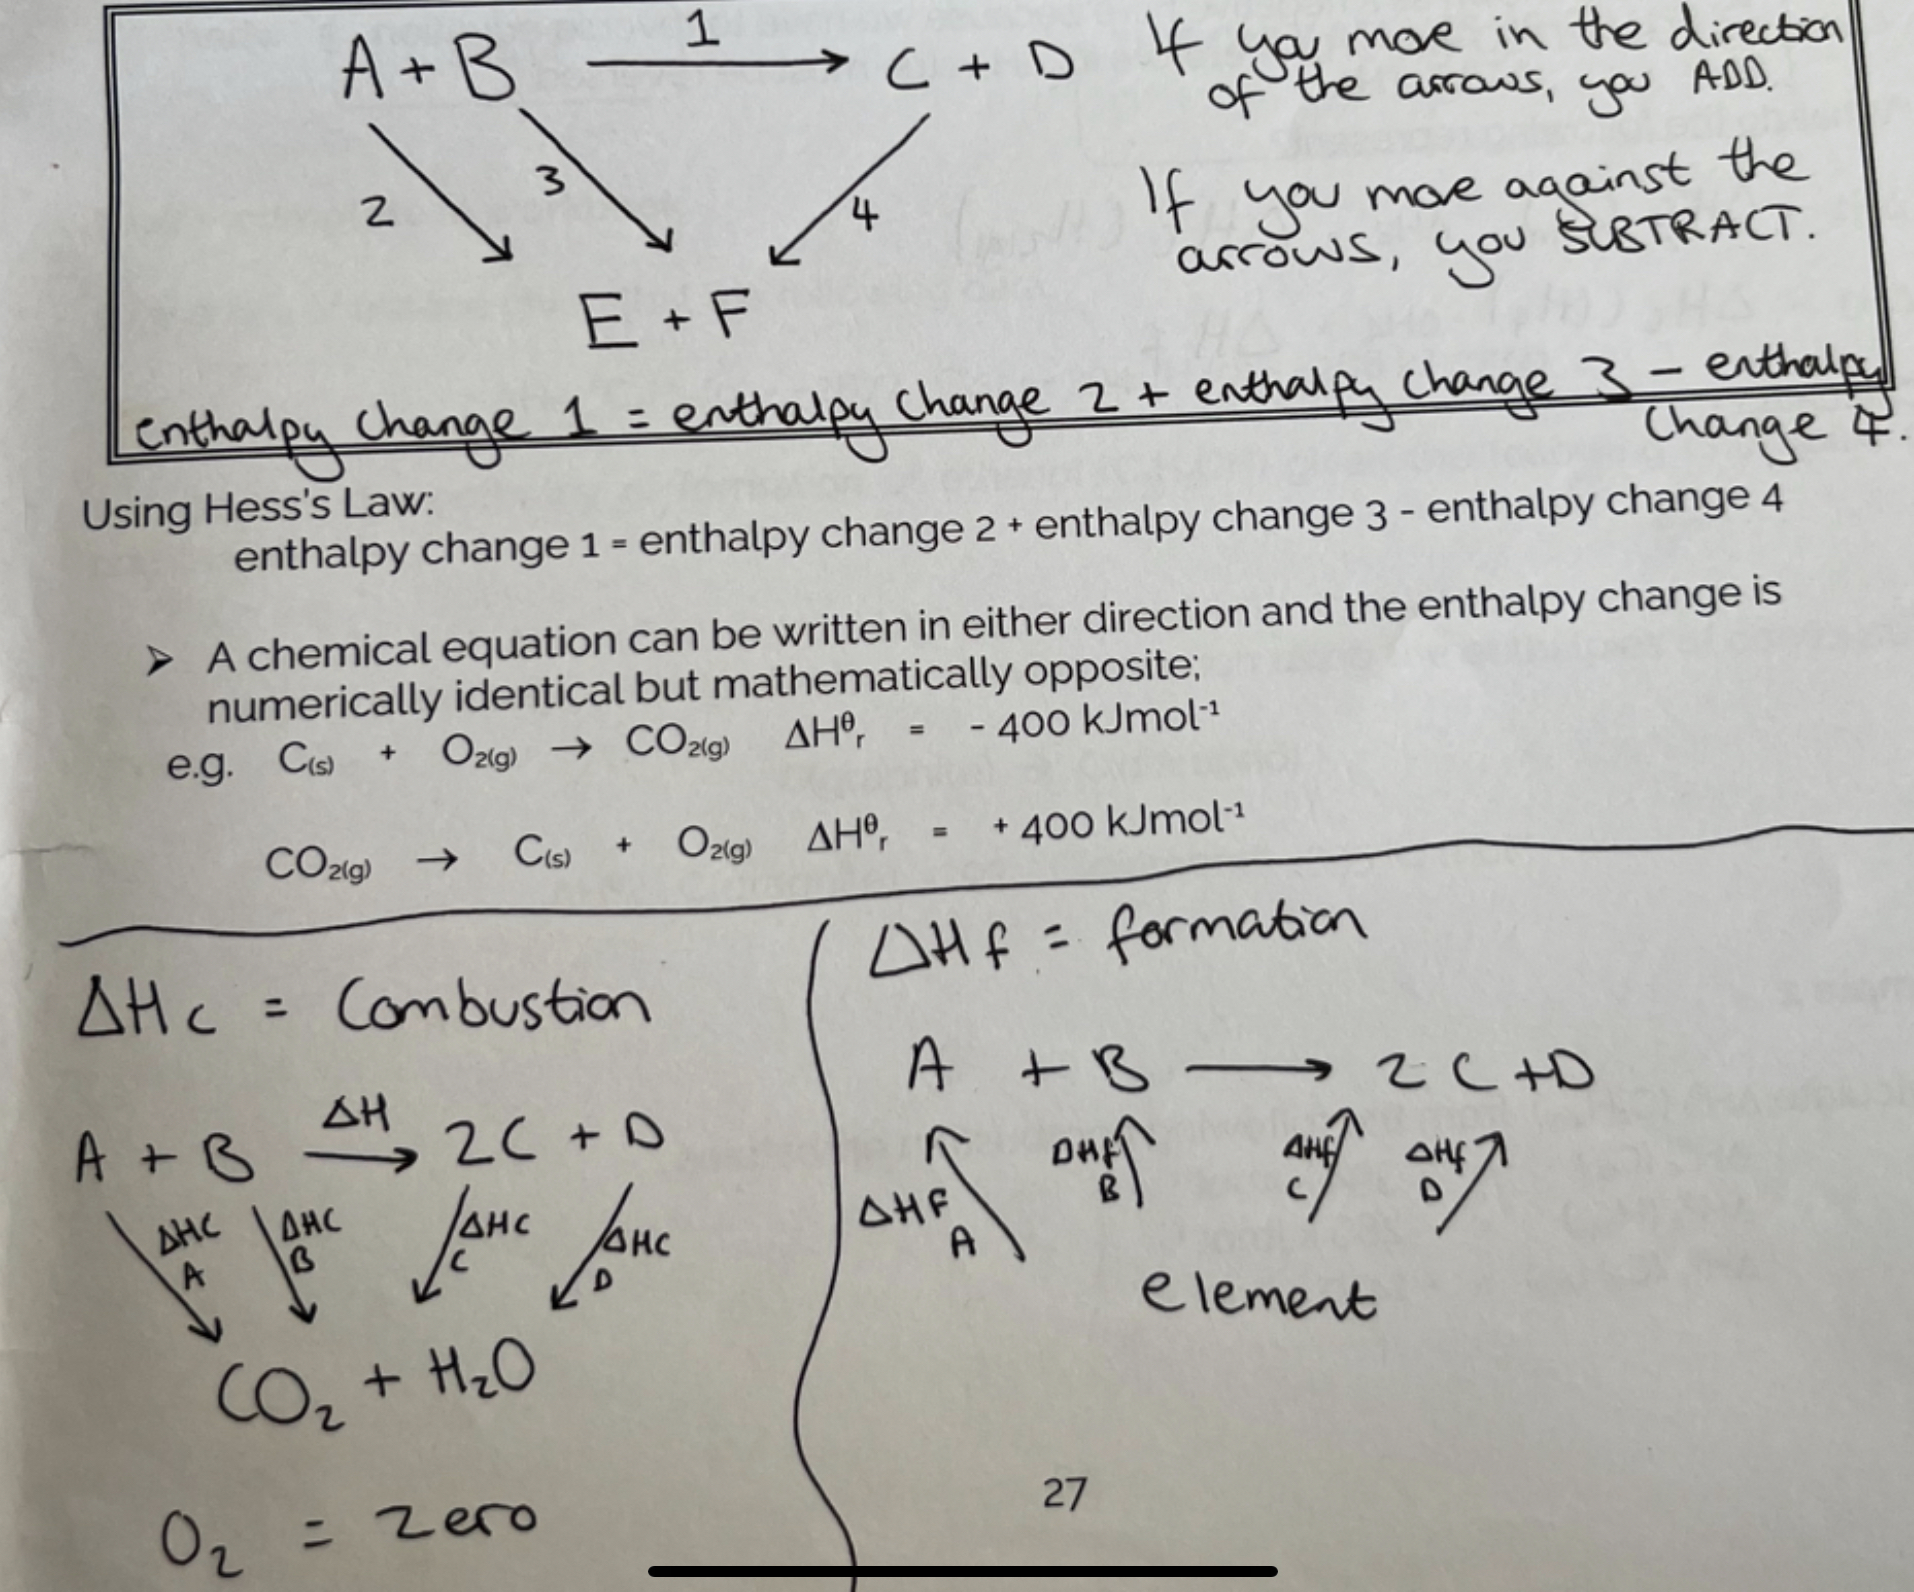 A + B 1→ C + D
If you move in the direction
of the arrows, you ADD.
2 3 4
If you move against the
arrows, you SUBTRACT.
E + F
enthalpy change 1 = enthalpy change 2 + enthalpy change 3 – enthalpy
change 4.
Using Hess's Law:
enthalpy change 1 = enthalpy change 2 + enthalpy change 3 - enthalpy change 4
➤ A chemical equation can be written in either direction and the enthalpy change is
numerically identical but mathematically opposite;
e.g. C(s) + O2(g) → CO2(g) ΔHθr = - 400 kJmol-1
CO2(g) → C(s) + O2(g) ΔHθr = + 400 kJmol-1
ΔHc = Combustion
A + B ΔH→ 2C + D
ΔHC A ΔHC B ΔHC C ΔHC D
CO2 + H2O
O2 = zero
ΔHf = formation
A + B → 2C + D
ΔHF A ΔHf B ΔHf C ΔHf D
element
27